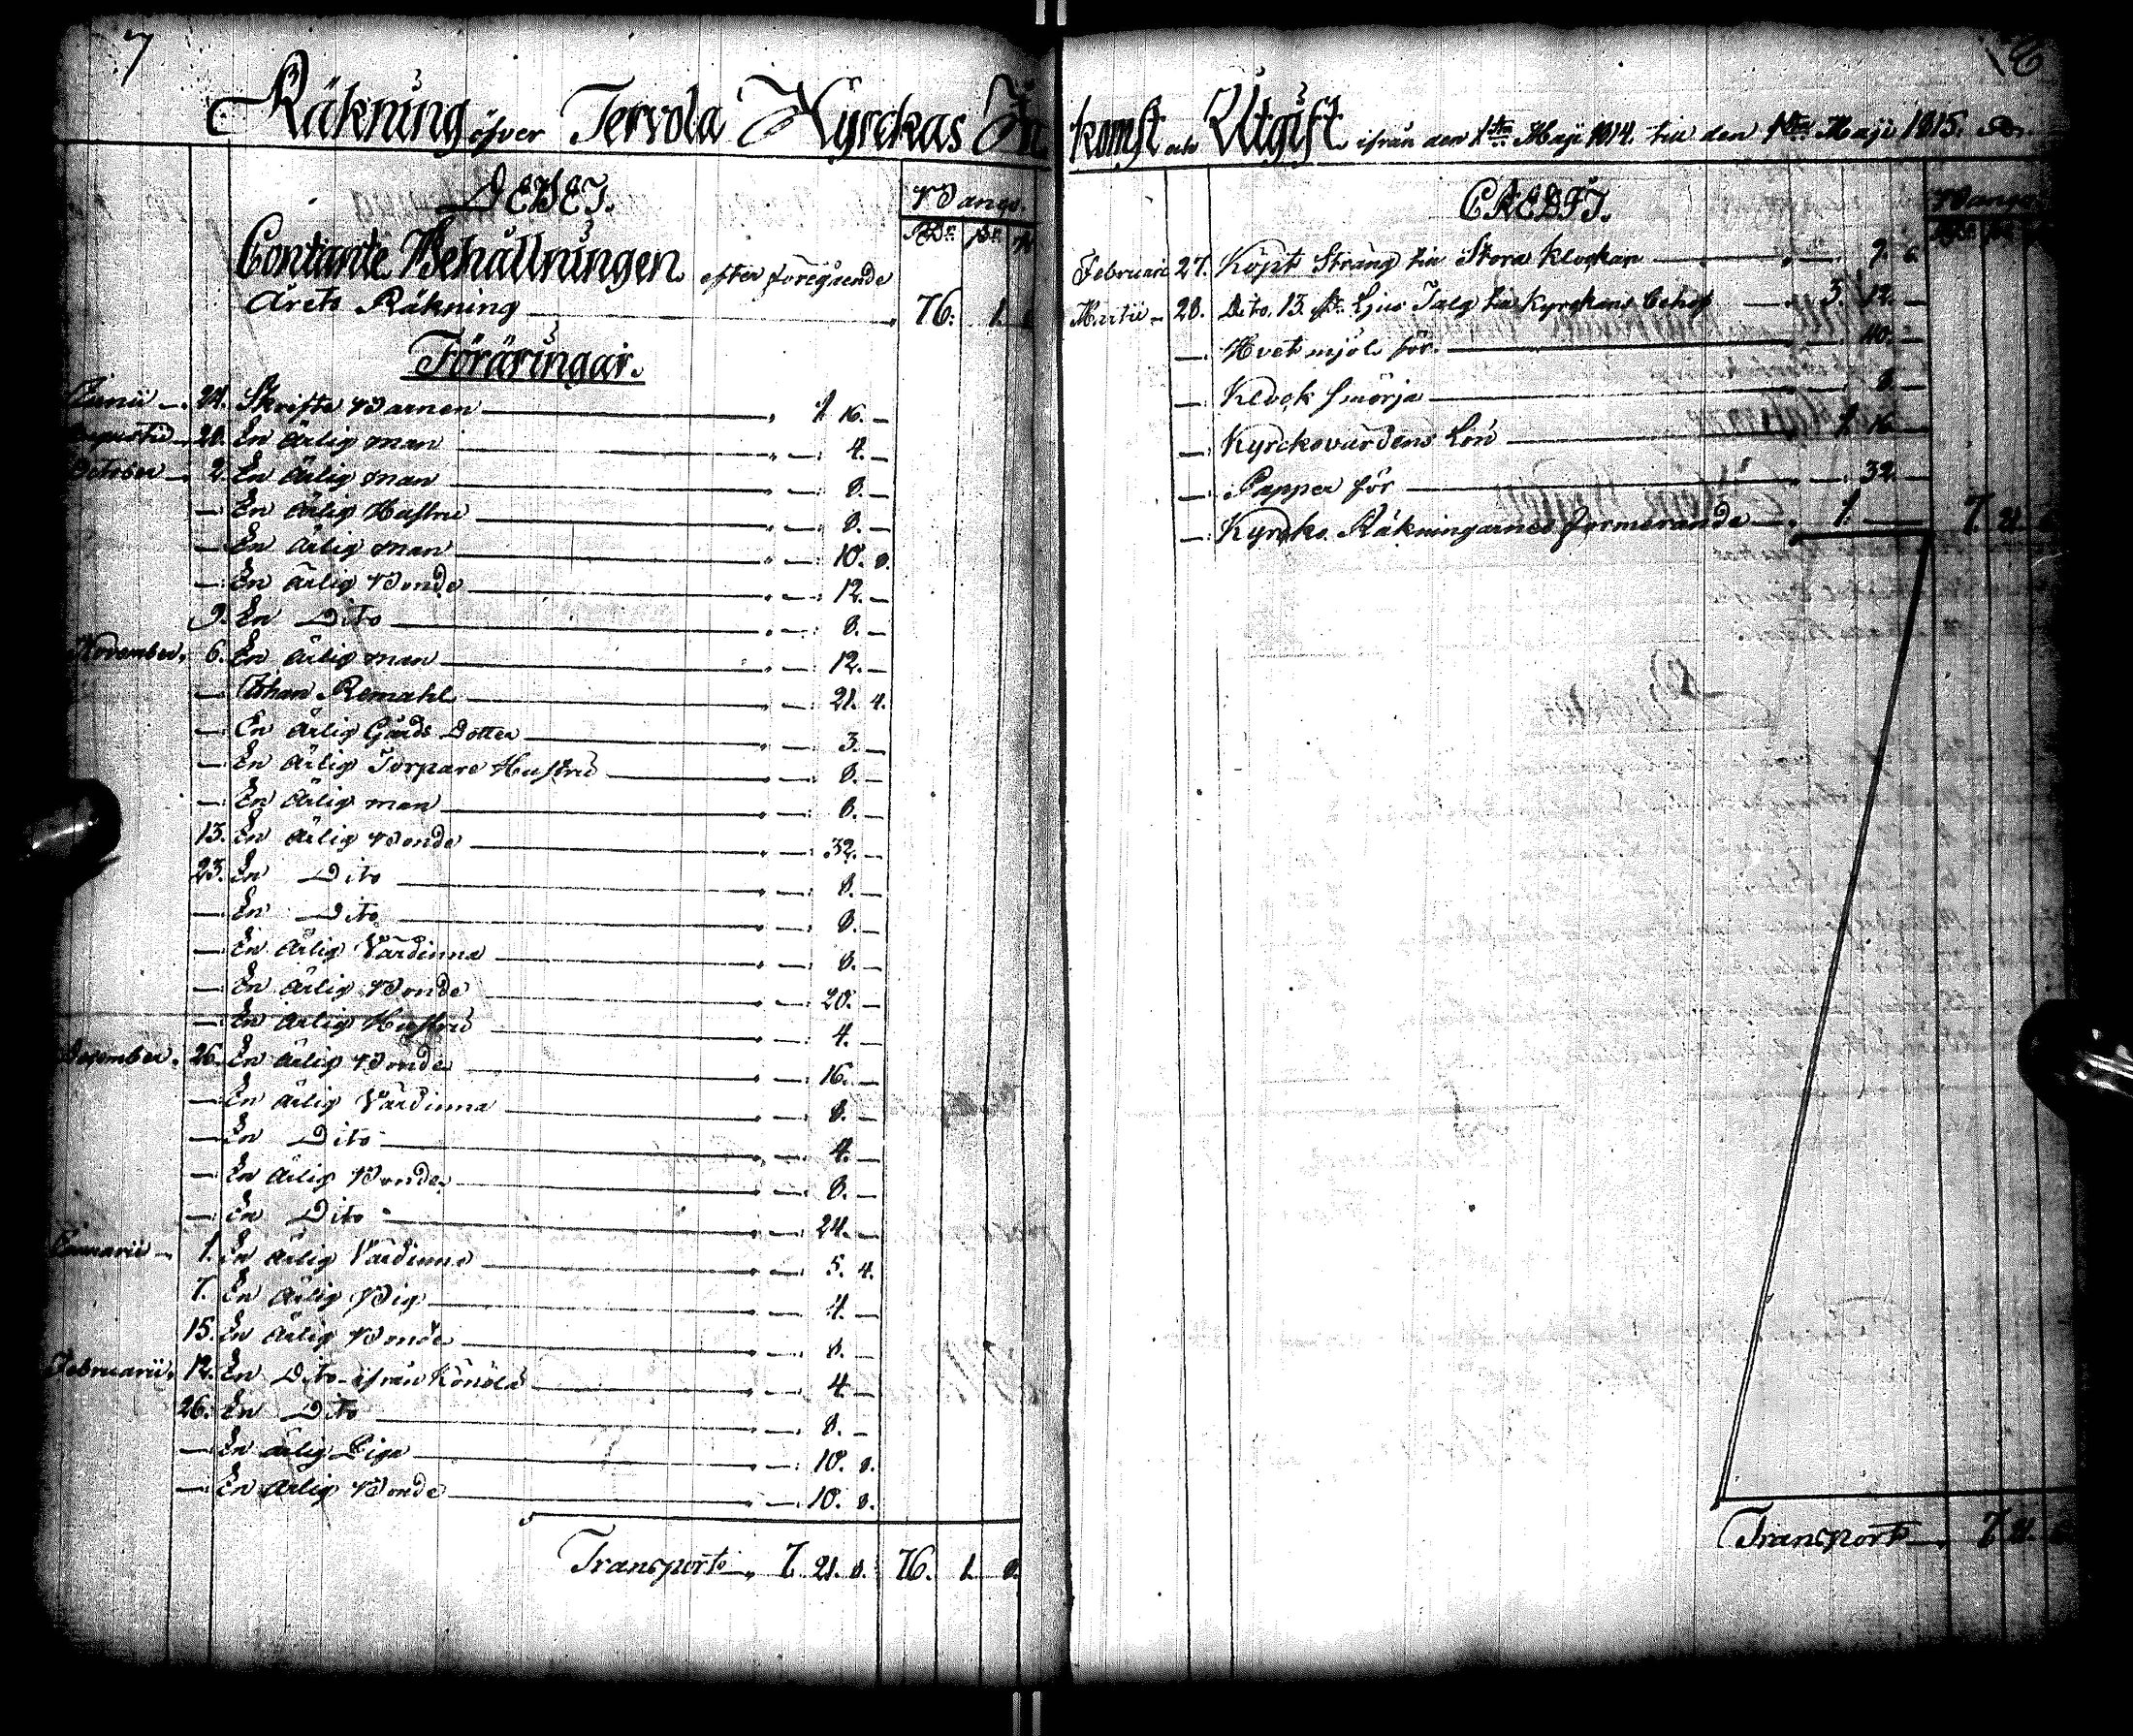 7
Räkning öfver Tervola Kyrckas In
DEBET.
Banco.
RDr. sk. r.
Contante Behållningen efter föregående
Årets Räkning 76. 1.
Föräringar.
Junii 24. Skrifte Barnen 1 16. —
Augusti 28. En ärlig man — 4. —
October 2. En ärlig man — 8. —
— En ärlig Hustru — 8. —
— En ärlig man — 10. 8.
— En ärlig Bonde — 12. —
9. En Dito — 8. —
November. 6. En ärlig man — 12. —
— Johan Remahl — 21. 4.
— En ärlig Gårds Dotter — 3. —
— En ärlig Torpare Hustru — 8. —
— En ärlig man — 8. —
13. En ärlig Bonde — 32. —
23. En Dito — 8. —
— En Dito — 8. —
— En ärlig Värdinna — 8. —
— En ärlig Bonde — 20. —
— En ärlig Hustru — 4. —
December. 26. En ärlig Bonde — 16. —
— En ärlig Värdinna — 8. —
— En Dito — 4. —
— En ärlig Bonde — 8. —
— En Dito — 24. —
Januarii 1. En ärlig Värdinna — 5. 4.
7. En ärlig Pig — 4. —
15. En ärlig Bonde — 8. —
Februarii. 12. En Dito ifrån Könölä — 4 —
26. En Dito — 8. —
— En ärlig Piga — 10. 8.
— En ärlig Bonde — 10. 8.
Transport 7. 21. 8. 76. 1. 8.
komst och Utgift ifrån den 1sta Maji 1814. till den 1sta Maji 1815.
CREDIT.
Banco
Februarii 27. Köpt Sträng till Stora Klockan — 9. 6.
Martii 20. Dito. 13. Ljus Talg till Kyrckans behof 3. 12. —
— Hvetemjöl för — 40. —
— Klock smörja — 8. —
— Kyrckovärdens Lön 1 16. —
— Papper för — 32. —
— Kyrcko Räkningarnes formerande 1. — 7. 21. 6.
Transport 7. 21. 6.